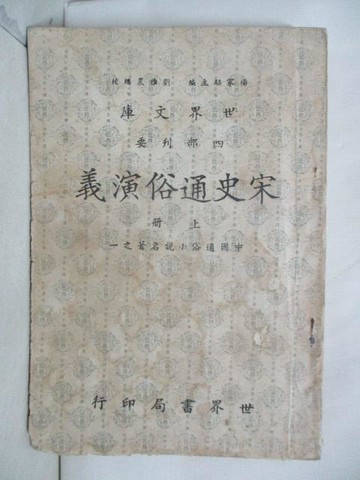 楊家駱主編　劉雅農總校
世界文庫
四部刊要
宋史通俗演義
上冊
中國通俗小說名著之一
世界書局印行